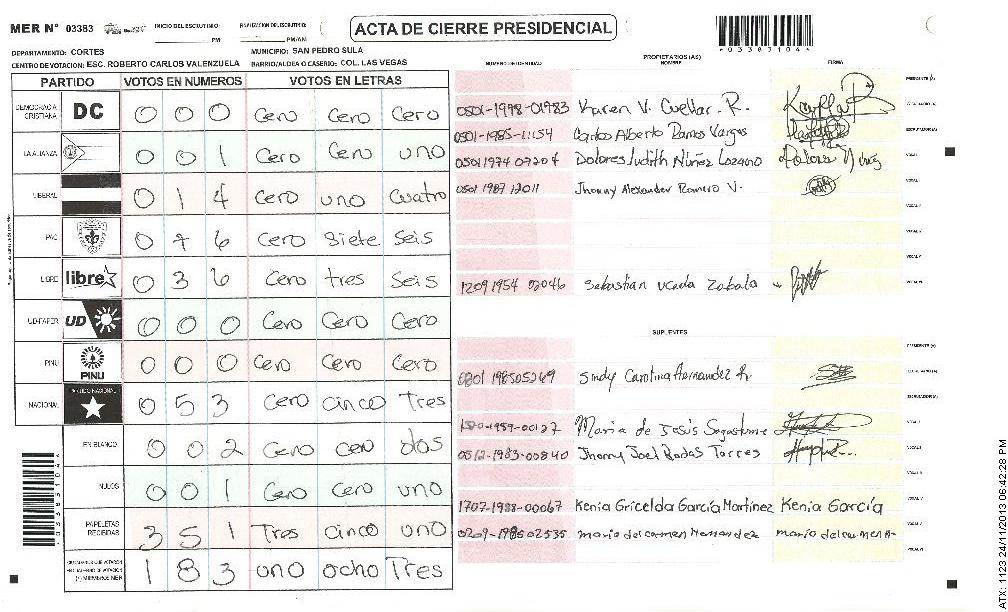 MER Nº 03383
INICIO DEL ESCRUTINIO:
PM
FINALIZACION DEL ESCRUTINIO:
PM/AM
ACTA DE CIERRE PRESIDENCIAL
DEPARTAMENTO: CORTES
MUNICIPIO: SAN PEDRO SULA
CENTRO DE VOTACION: ESC. ROBERTO CARLOS VALENZUELA
BARRIO/ALDEA O CASERIO: COL. LAS VEGAS
PARTIDO VOTOS EN NUMEROS VOTOS EN LETRAS
DEMOCRACIA CRISTIANA DC 0 0 0 Cero Cero Cero
LA ALIANZA 0 0 1 Cero Cero uno
LIBERAL 0 1 4 Cero uno Cuatro
PAC 0 7 6 Cero Siete Seis
LIBRE libre 0 3 6 Cero tres Seis
UD-FAPER UD 0 0 0 Cero Cero Cero
PINU PINU 0 0 0 Cero Cero Cero
NACIONAL 0 5 3 Cero cinco Tres
EN BLANCO 0 0 2 Cero Cero dos
NULOS 0 0 1 Cero Cero uno
PAPELETAS RECIBIDAS 3 5 1 Tres cinco uno
1 8 3 uno ocho Tres
NUMERO DE IDENTIDAD
PROPIETARIOS (AS)
NOMBRE
FIRMA
0501-1998-01983 Karen V. Cuellar. R.
0501-1985-11154 Carlos Alberto Ramos Vargas
0501 1974 07204 Dolores Judith Núñez Lozano
0501 1987 12011 Jhonny Alexander Romero V.
1209 1954 02046 Sebastian uceda Zabala
SUPLENTES
Sindy Carolina Hernandez
Maria de Jesús Sagastume
0512-1983-00840 Jhonny Joel Rodas Torres
1707-1988-00067 Kenia Gricelda García Martínez Kenia García
0209-1985 02535 maria del carmen Hernandez maria del carmen H-
ATX: 1123 24/11/2013 06:42:28 PM